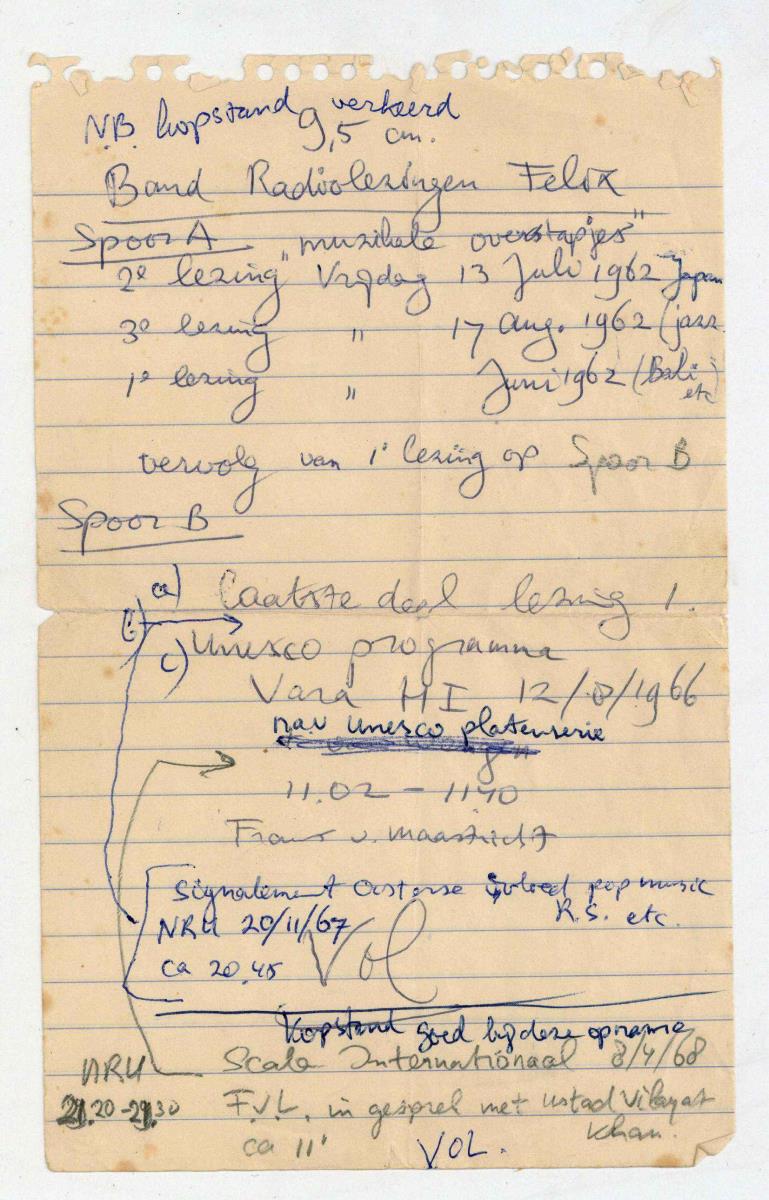 N.B. kopstand verkeerd
9,5 cm.
Band Radiolezingen Felix
Spoor A "muzikale overstapjes"
2e lezing Vrijdag 13 Juli 1962 Japan
3e lezing " 17 Aug. 1962 (jazz
1e lezing " Juni 1962 (Bali etc)
vervolg van 1e lezing op Spoor B
Spoor B
a) laatste deel lezing 1.
b)
c) Unesco programma
Vara HI 12/8/1966
n.a.v Unesco platenserie
11.02 - 1140
Frans v. Maastricht
Signalement Oosterse invloed pop music
R.S. etc.
NRU 20/11/67
ca 20.45 Vol
Kopstand goed bij deze opname
NRU Scala Internationaal 8/4/68
21.20-21.30 F.V.L. in gesprek met ustad Vilayat
Khan.
ca 11' VOL.